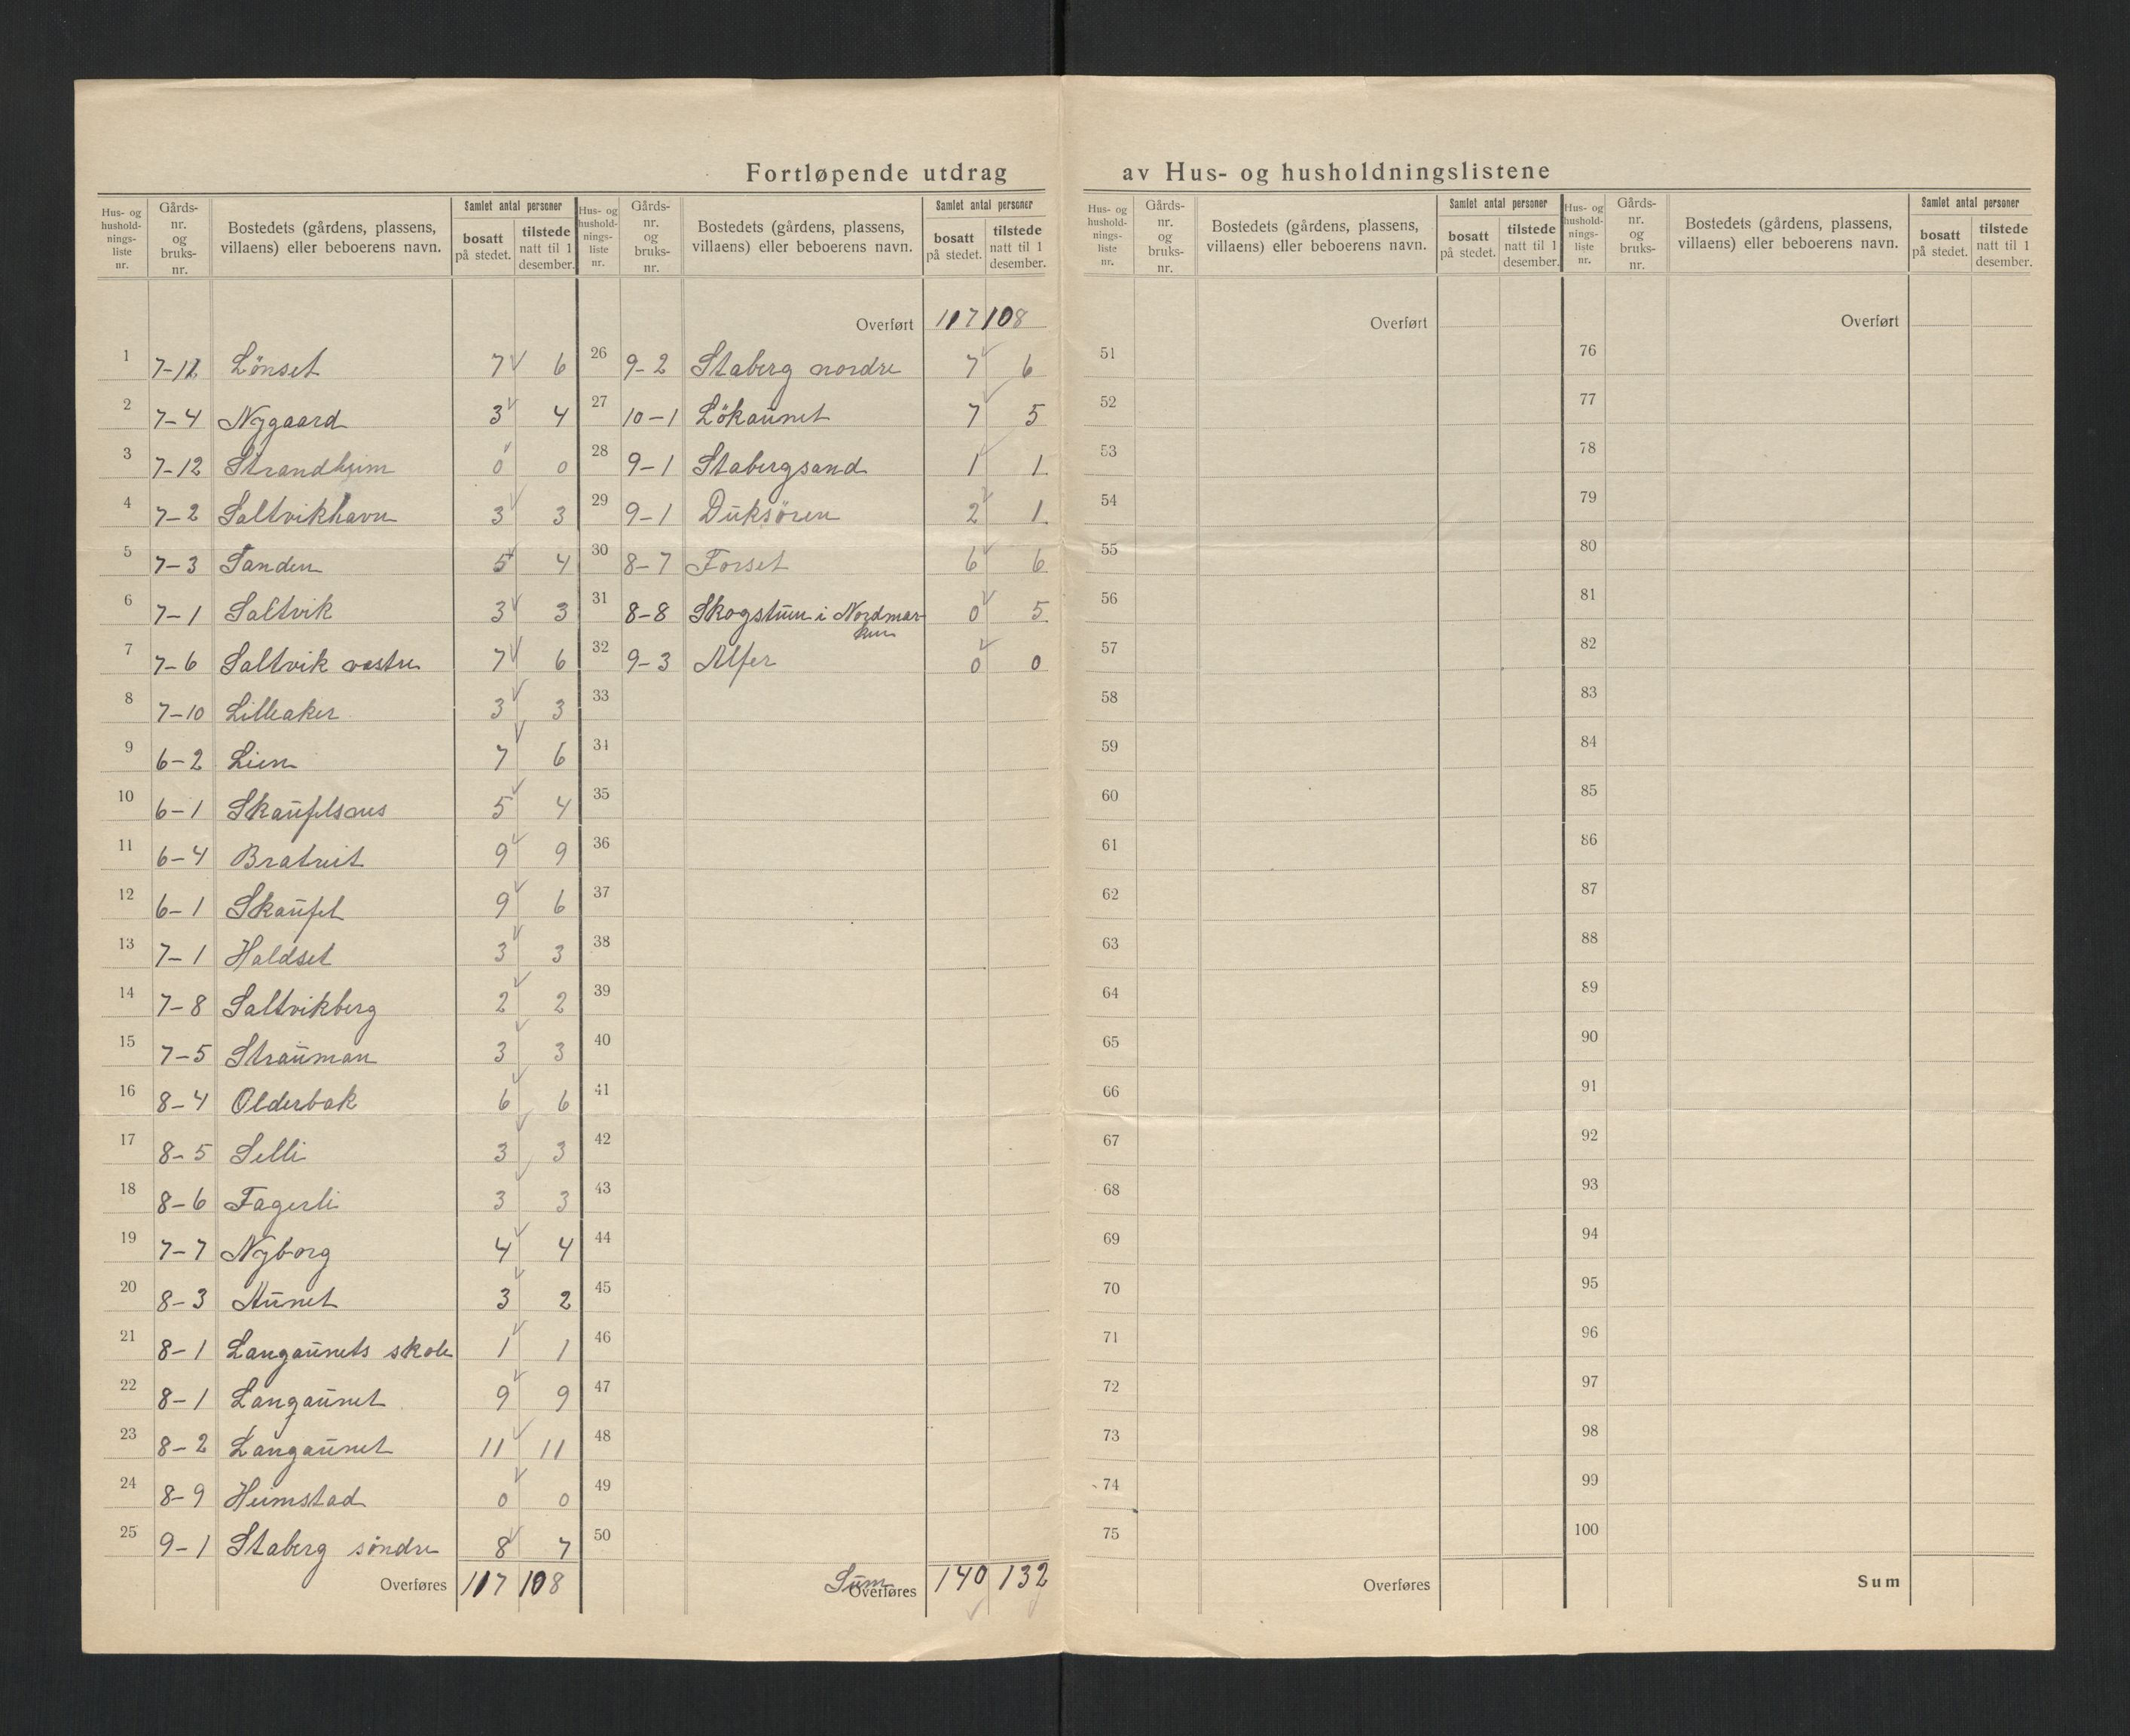 Fortløpende utdrag av Hus- og husholdningslistene
Hus- og hushold-nings-liste nr. Gårds-nr. og bruks-nr. Bostedets (gårdens, plassens, villaens) eller beboerens navn. Samlet antal personer bosatt på stedet. tilstede natt til 1 desember.
1 7-12 Lönset 7 6
2 7-4 Nygaard 3 4
3 7-12 Strandheim 0 0
4 7-2 Saltvikhavn 3 3
5 7-3 Tanden 5 4
6 7-1 Saltvik 3 3
7 7-6 Saltvik vestre 7 6
8 7-10 Lilleaker 3 3
9 6-2 Lien 7 6
10 6-1 Skaufelsaus 5 4
11 6-4 Bratreit 9 9
12 6-1 Skaufel 9 6
13 7-1 Haldset 3 3
14 7-8 Saltvikberg 2 2
15 7-5 Strauman 3 3
16 8-4 Olderbak 6 6
17 8-5 Selli 3 3
18 8-6 Fagerli 3 3
19 7-7 Nyborg 4 4
20 8-3 Aunet 3 2
21 8-1 Langaunets skole 1 1
22 8-1 Langaunet 9 9
23 8-2 Langaunet 11 11
24 8-9 Heimstad 0 0
25 9-1 Staberg söndre 8 7
Overføres 117 108
Hus- og hushold-nings-liste nr. Gårds-nr. og bruks-nr. Bostedets (gårdens, plassens, villaens) eller beboerens navn. Samlet antal personer bosatt på stedet. tilstede natt til 1 desember.
Overført 117 108
26 9-2 Staberg nordre 7 6
27 10-1 Lökaunet 7 5
28 9-1 Stabergsand 1 1
29 9-1 Duksören 2 1
30 8-7 Forset 6 6
31 8-8 Skogstun i Nordmar-
ken 0 5
32 9-3 Alfer 0 0
33
34
35
36
37
38
39
40
41
42
43
44
45
46
47
48
49
50
Sum
Overføres 140 132
Hus- og hushold-nings-liste nr. Gårds-nr. og bruks-nr. Bostedets (gårdens, plassens, villaens) eller beboerens navn. Samlet antal personer bosatt på stedet. tilstede natt til 1 desember.
Overført
51
52
53
54
55
56
57
58
59
60
61
62
63
64
65
66
67
68
69
70
71
72
73
74
75
Overføres
Hus- og hushold-nings-liste nr. Gårds-nr. og bruks-nr. Bostedets (gårdens, plassens, villaens) eller beboerens navn. Samlet antal personer bosatt på stedet. tilstede natt til 1 desember.
Overført
76
77
78
79
80
81
82
83
84
85
86
87
88
89
90
91
92
93
94
95
96
97
98
99
100
Sum